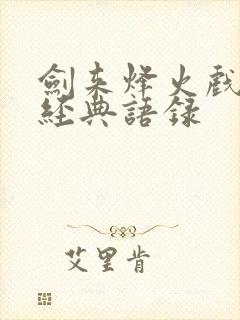 劍来烽火戲
經典語录
艾里肯